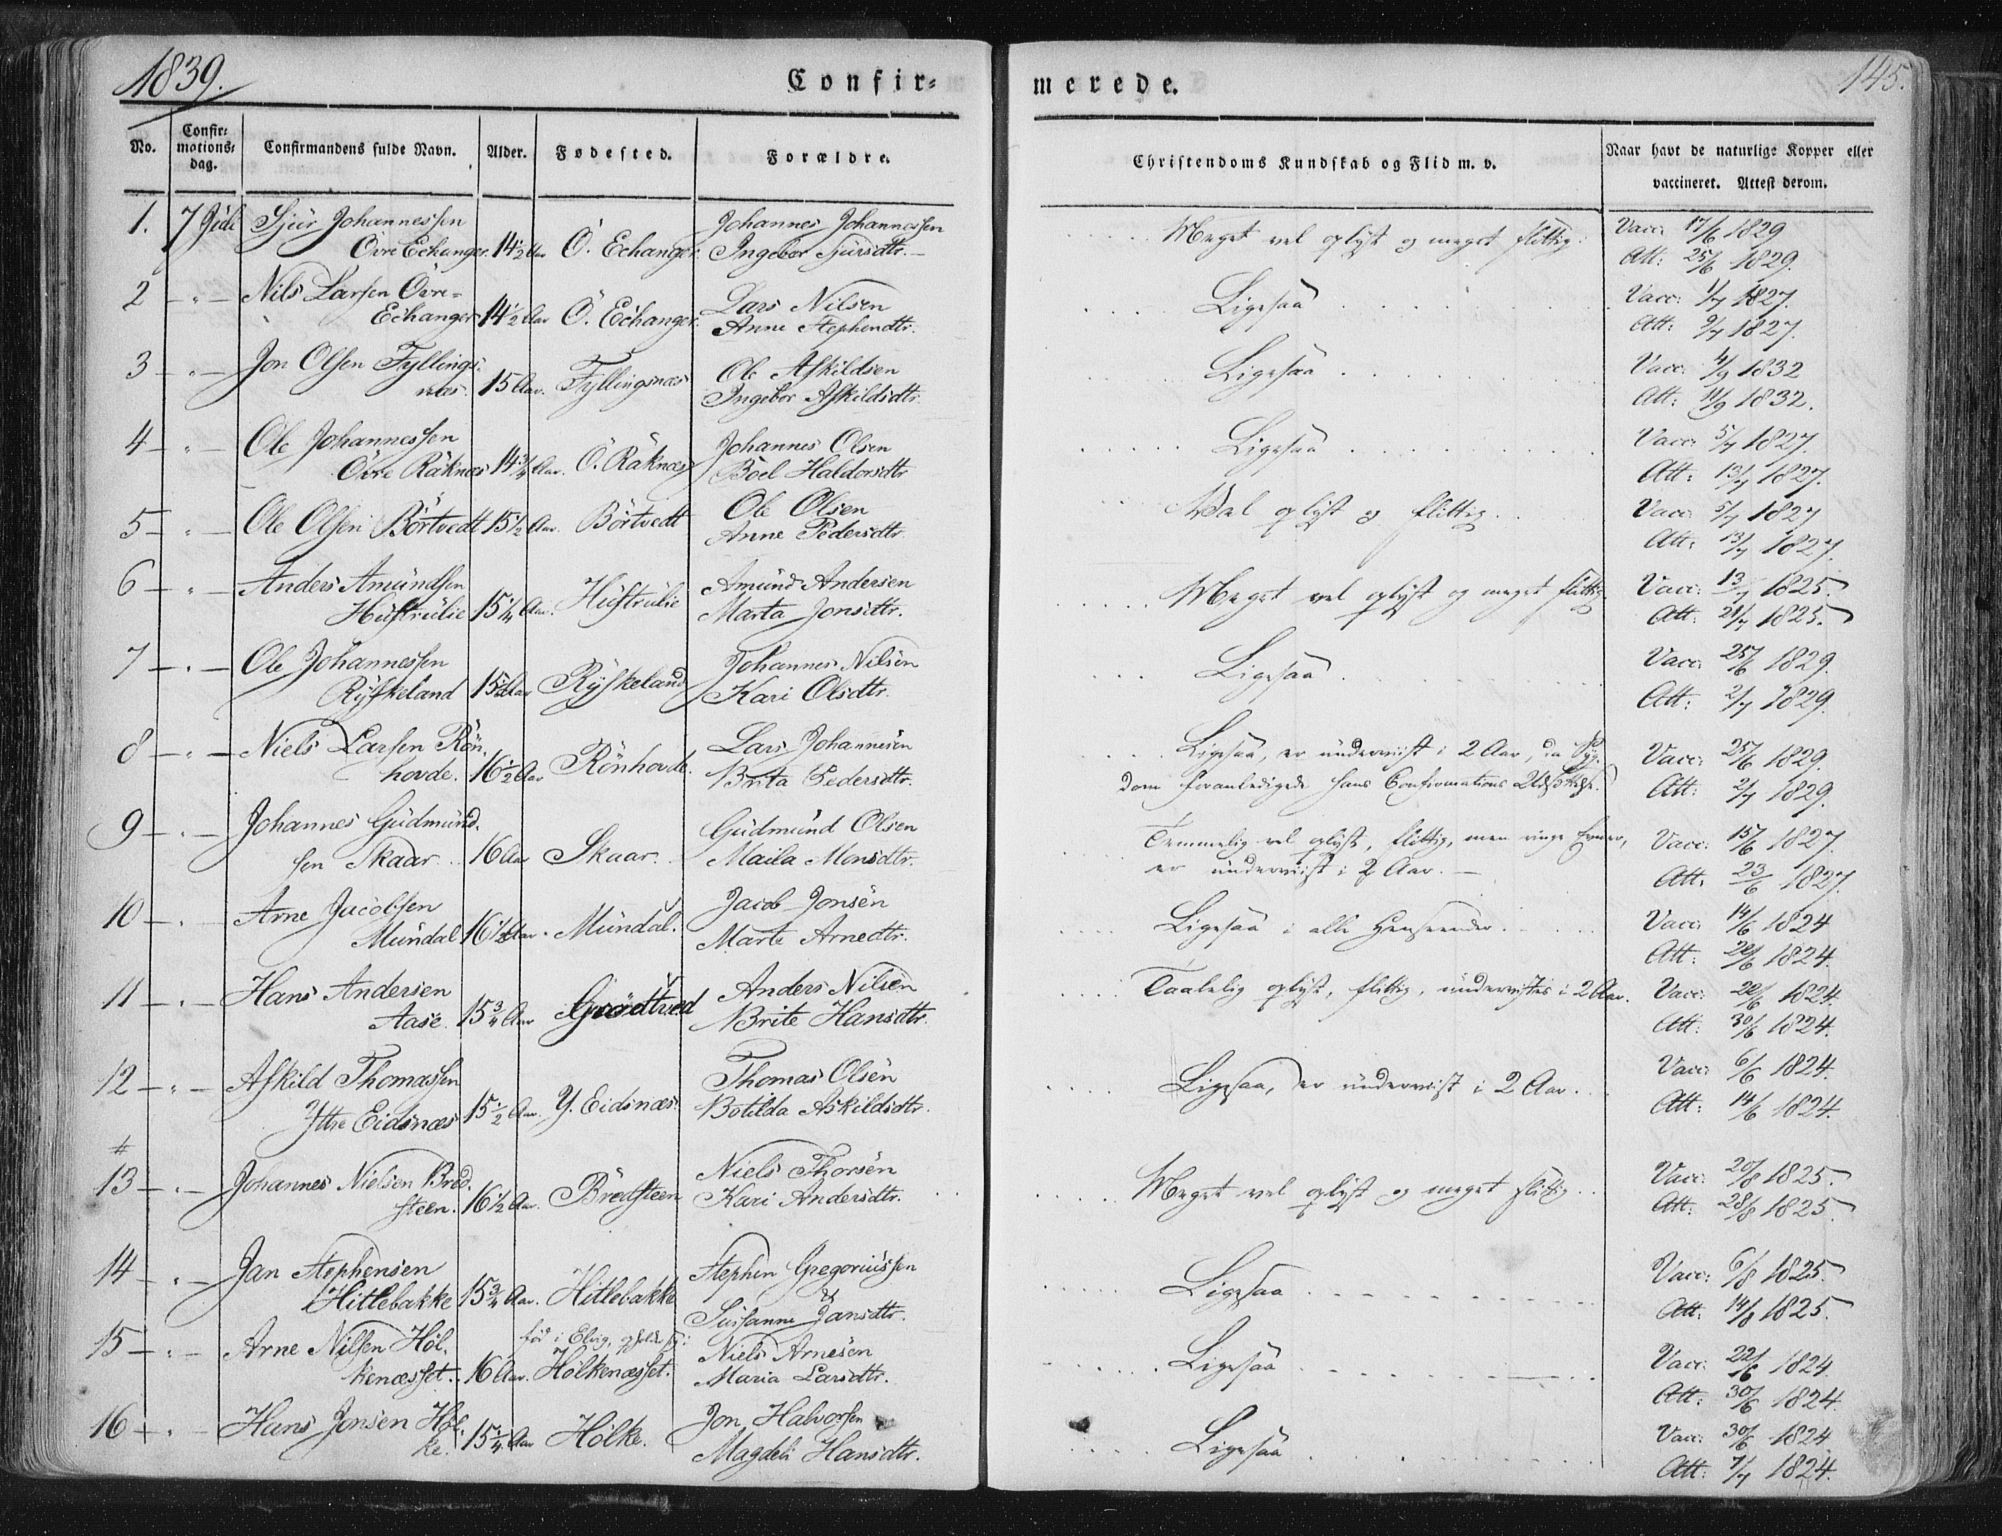 1839.
Confir=
merede.
145.
No.
Confir=
mations=
dag.
Confirmandens fulde Navn.
Alder.
Fødested.
Forældre.
Christendoms Kundskab og Flid m. v.
Naar havt de naturlige Kopper eller
vaccineret. Attest derom.
1. 7 Juli Sjur Johannessen Johannes Johannessen Meget vel oplyst og meget flittig. Vacc: 17/6 1829
Øvre Echanger. 14½ Aar Ö. Echanger. Ingebor Sjursdtr. Att: 25/6 1829.
2 - " - Nils Larsen Övre= Lars Nilsen Ligesaa Vacc: 1/7 1827.
Echanger 14½ Aar Ö. Echanger. Anne Stephendtr. Att: 9/7 1827.
3 - " - Jon Olsen Fyllings= Ole Askildsen Ligesaa Vacc: 4/9 1832
næs. 15 Aar. Fyllingsnæs Ingebor Askildsdtr. Att: 11/9 1832.
4 - " - Ole Johannessen Johannes Olsen Ligesaa Vacc: 5/7 1827.
Övre Räknæs 14¾ Aar. Ö. Räknæs Böel Haldorsdtr Att: 13/7 1827.
5 - " - Ole Olsen Börtvedt 15½ Aar Börtvedt Ole Olsen Vel oplyst og flittig. Vacc: 5/7 1827
Anne Pedersdtr. Att: 13/7 1827.
6 - " - Anders Amundsen Amund Andersen Meget vel oplyst og meget flittig Vacc: 13/7 1825.
Hustrulie 15¼ Aar. Hustrulie Marta Jonsdtr. Att: 21/7 1825.
7 - " - Ole Johannessen Johannes Nilsen Ligesaa Vacc: 25/6 1829.
Ryskeland 15 Aar Ryskeland Kari Olsdtr. Att: 2/7 1829.
8 - " - Niels Larsen Rön= Lars Johannesen Ligesaa, er underviist i 2 Aar, da Syg= Vacc: 25/6 1829.
hovde. 16½ Aar Rönhovde. Brita Pedersdtr. dom foranledigede hans Confirmations Udsættelse. Att: 2/7 1829.
9 - " - Johannes Gudmund= Gudmund Olsen Temmelig vel oplyst, flittig, men ringe Evner, Vacc: 15/6 1827.
sen Skaar. 16 Aar Skaar. Maila Monsdtr. er underviist i 2 Aar. Att: 23/6 1827.
10 - " - Arne Jacobsen Jacob Jonsen Ligesaa i alle Henseender. Vacc: 14/6 1824
Mundal 16½ Aar. Mundal. Marte Arnedtr. Att: 22/6 1824.
11 - " - Hans Andersen Anders Nilsen Taalelig oplyst, flittig, undervistes i 2 Aar. Vacc: 22/6 1824.
Aase. 15¾ Aar Brite Hansdtr. Att: 30/6 1824.
12 - " - Askild Thomassen Thomas Olsen Ligesaa, er underviist i 2 Aar. Vacc: 6/6 1824.
Yttre Eidsnæs 15½ Aar. Y. Eidsnæs. Botilda Askildsdtr. Att: 14/6 1824.
#
13 - " - Johannes Nielsen Bred= Niels Thorsen Meget vel oplyst og meget flittig Vacc: 20/8 1825.
steen. 16½ Aar. Bredsteen Kari Andersdtr. Att: 28/8 1825.
14 - " - Jan Stephensen Stephen Gregoriussen Ligesaa Vacc: 6/8 1825.
Hitlebakke 15¾ Aar. Hitlebakke Susanne Jansdtr. Att: 14/8 1825.
15 - " - Arne Nilsen Höl= fød i Elvig, Niels Arnesen Ligesaa Vacc: 22/6 1824
kenæsset. 16 Aar. Hölkenæsset. Maria Larsdtr. Att: 30/6 1824.
16 - " - Hans Jonsen Höl= Jon Halvorsen Ligesaa Vacc: 30/6 1824
ke. 15¼ Aar Hölke. Magdeli Hansdtr. Att: 7/7 1824.